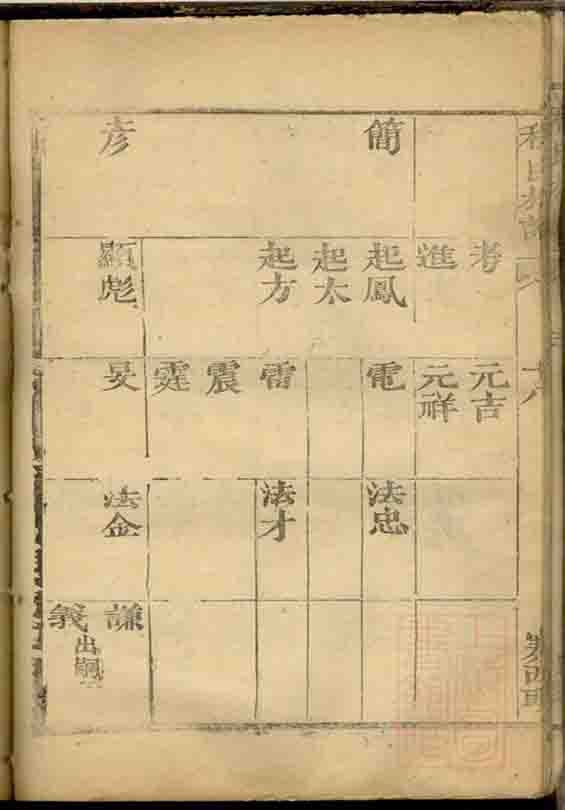 簡
彦
考
進
起鳳
起太
起方
顯彪
元吉
元祥
電
雷
震
霆
旻
法忠
法才
法金
謙
義
出嗣